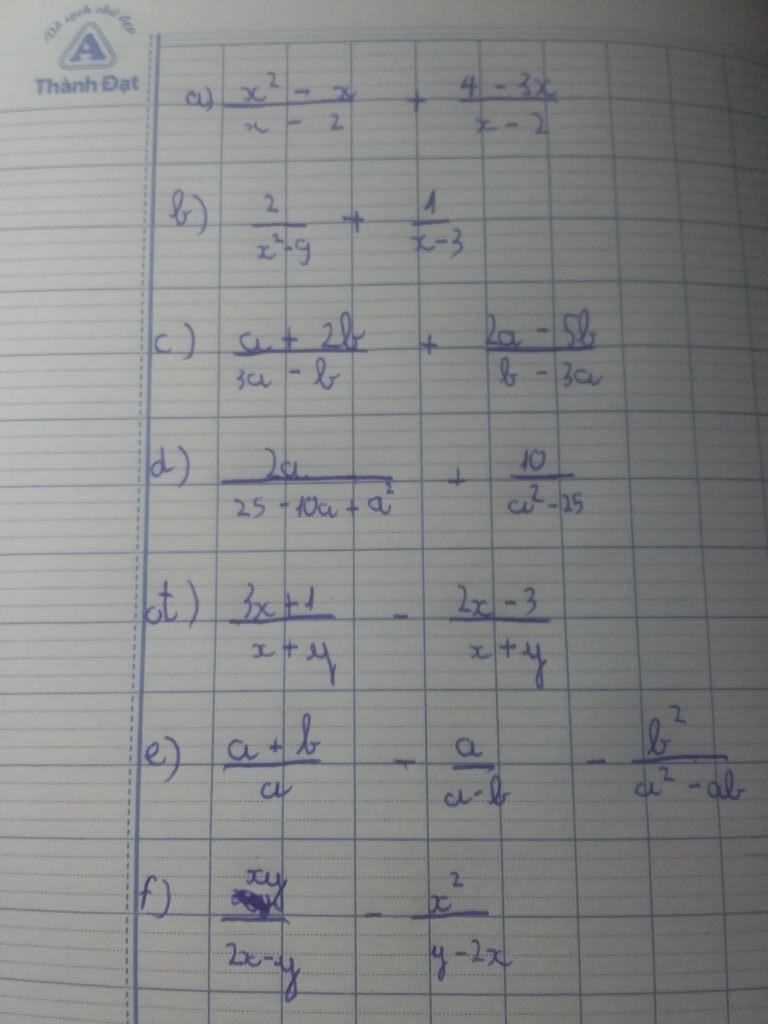 Đã sạch chữ đẹp
A
Thành Đạt
a) (x² - x)/(x - 2) + (4 - 3x)/(x - 2)
b) 2/(x² - 9) + 1/(x - 3)
c) (a + 2b)/(3a - b) + (2a - 5b)/(b - 3a)
d) 2a/(25 - 10a + a²) + 10/(a² - 25)
đ) (3x + 1)/(x + y) - (2x - 3)/(x + y)
e) (a + b)/a - a/(a - b) - b²/(a² - ab)
f) xy/(2x - y) - x²/(y - 2x)